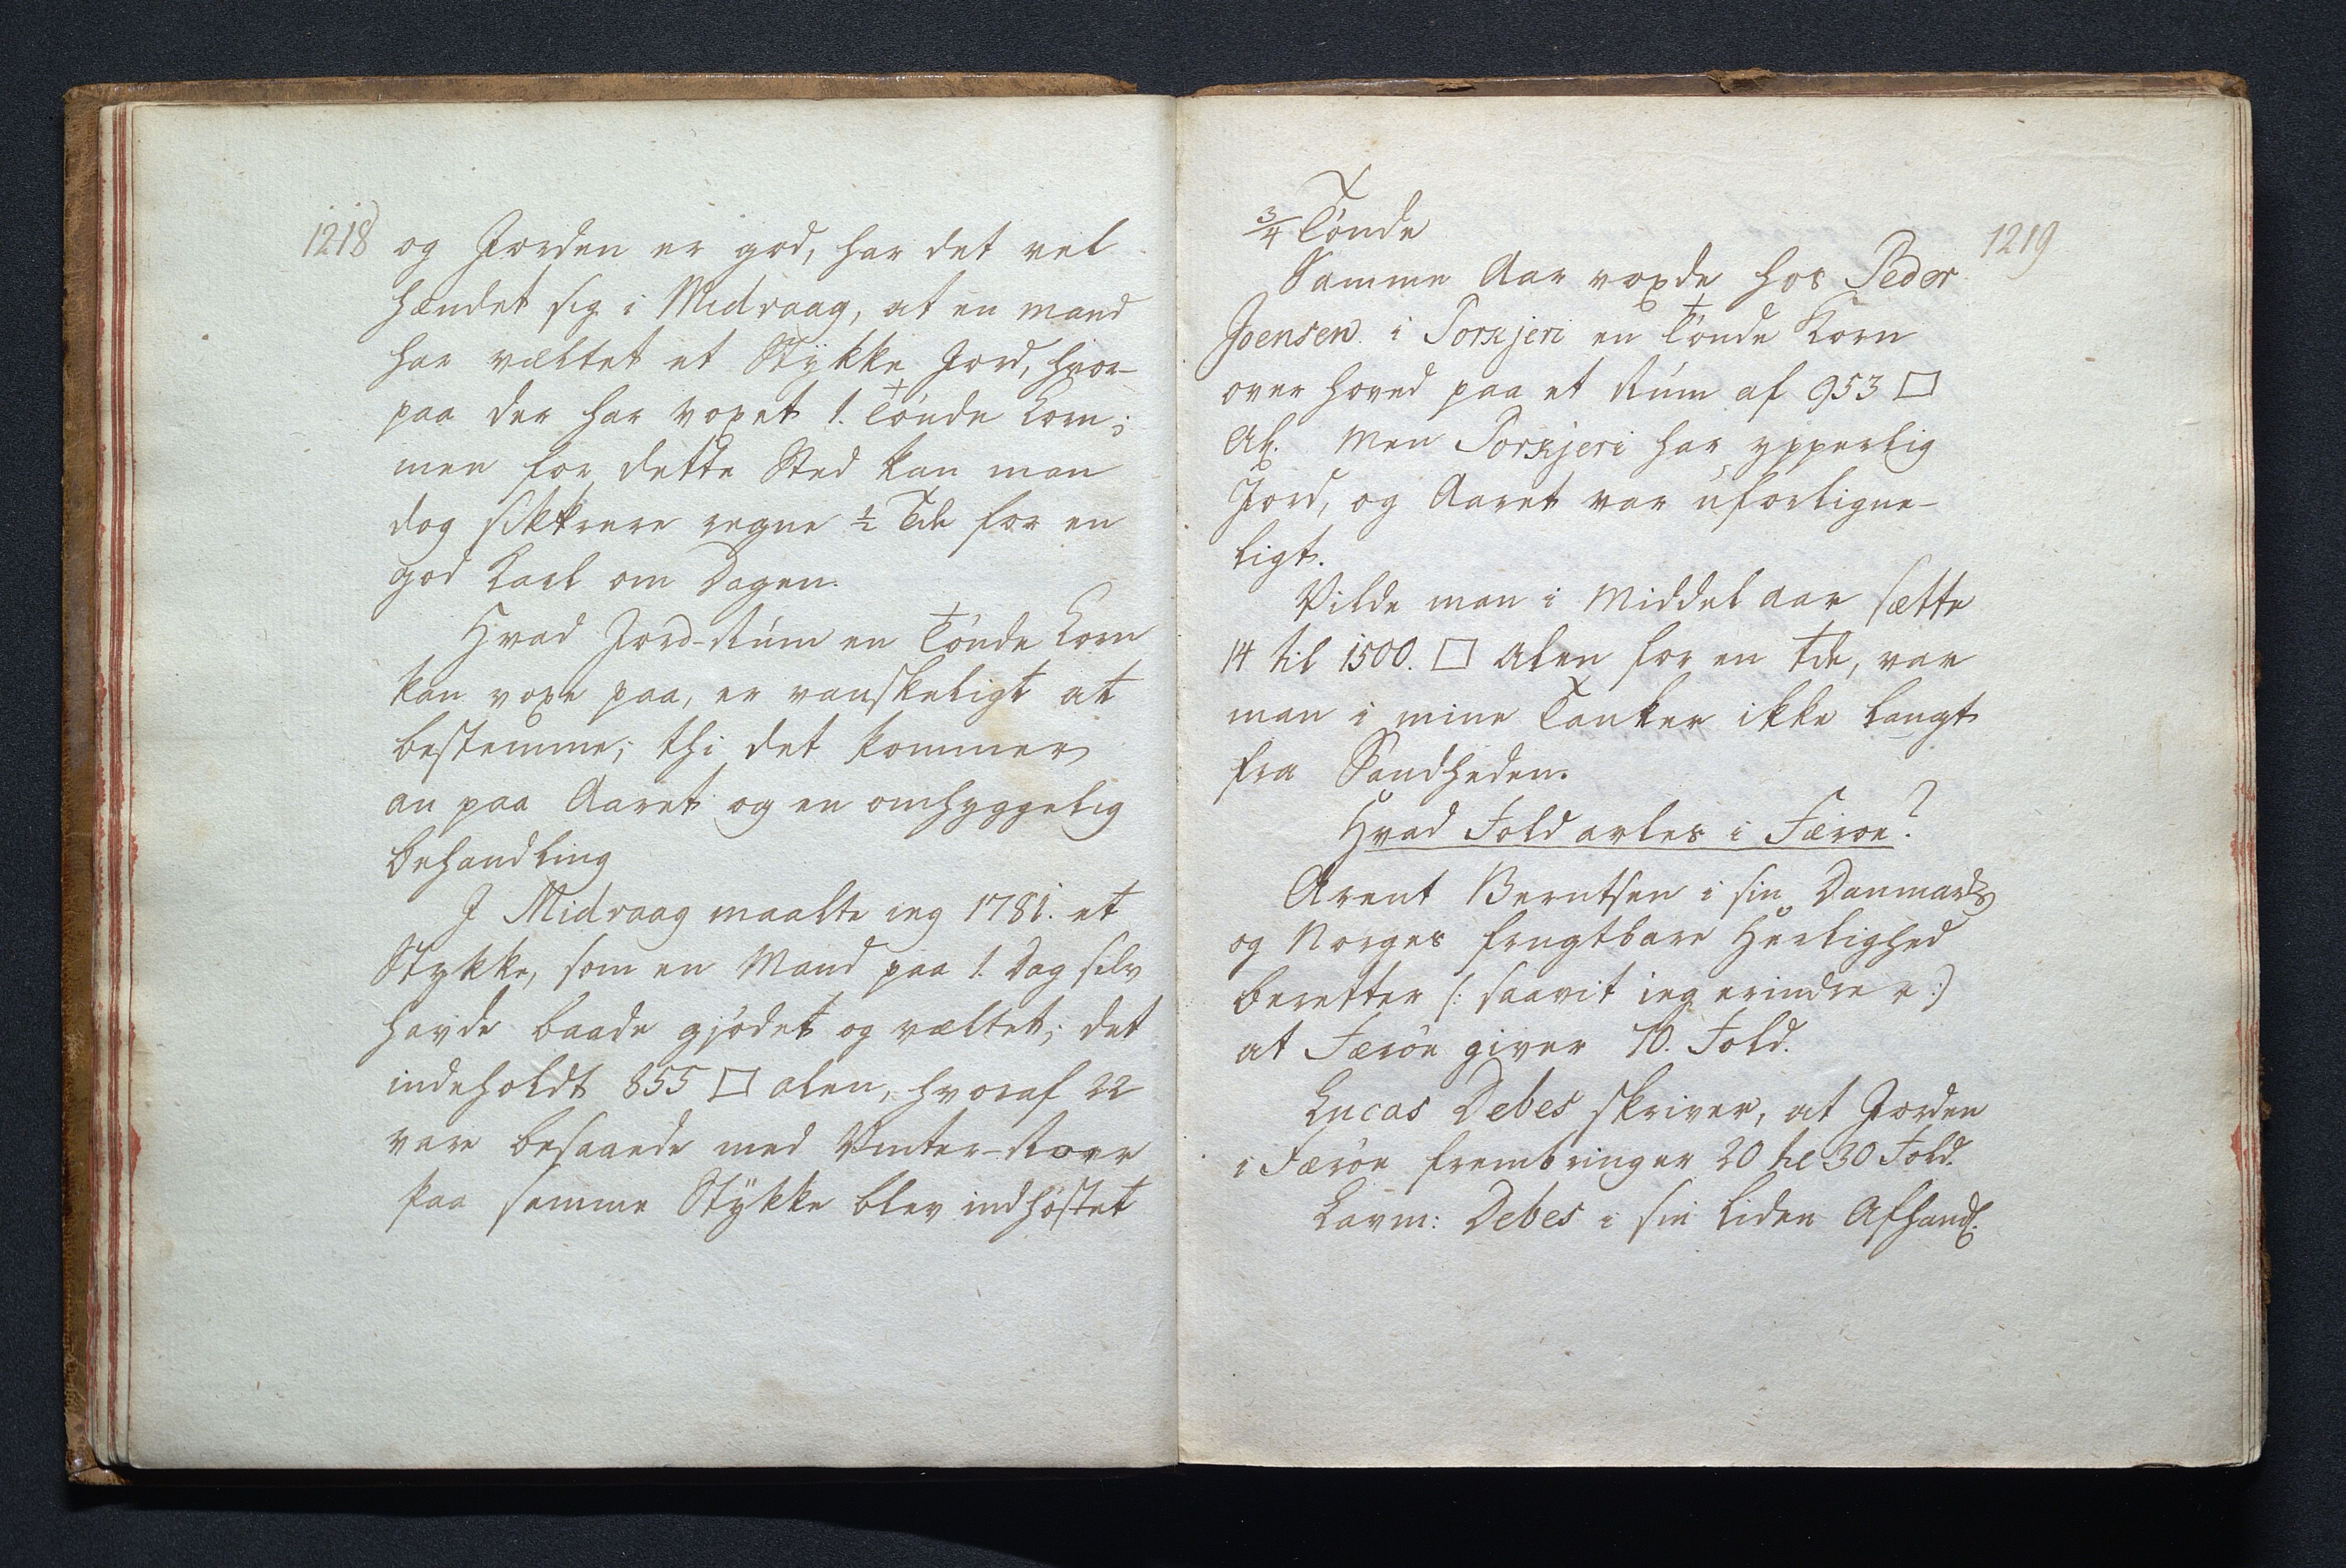 1218
og Jorden er god, har det vel
hændet sig i Midvaag, at en mand
har væltet et Stykke Jord, hvor-
paa der har voxet 1. Tönde Korn;
men for dette Sted kan man
dog sikkrere regne ½ Tde for en
god Karl om Dagen.
Hvad Jord-Rum en Tönde Korn
kan voxe paa, er vanskeligt at
bestemme; thi det kommer
an paa Aaret og en omhyggelig
behandling
I Midvaag maalte ieg 1781. et
Stykke, som en Mand paa 1. Dag selv
havde baade gjödet og væltet; det
indeholdt 855 □ alen, hvoraf 22
vare besaaede med Vinter-Roer
paa samme Stykke blev indhöstet
1219
¾ Tönde
Samme Aar voxde hos Peder
Joensen i Porkjeri en Tönde Korn
over hoved paa et Rum af 953 □
Al. Men Porkjeri har ypperlig
Jord, og Aaret var uforligne-
ligt.
Vilde man i Middel aar sætte
14 til 1500. □ alen for en tde, var
man i mine Tanker ikke langt
fra Sandheden.
Hvad Fold avles i Færoe?
Arent Berntsen i sin Danmarks
og Norges frugtbare Herlighed
beretter (: saavit ieg erindre :)
at Færöe giver 10. Fold.
Lucas Debes skriver, at Jorden
i Færöe frembringer 20 til 30 Fold.
Lavm: Debes i sin liden Afhandl.